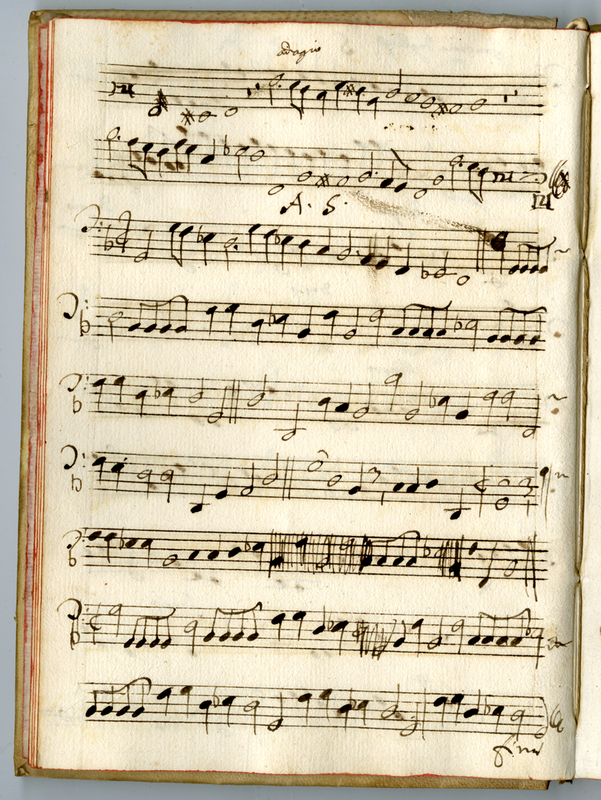 adagio
A. S.
fine